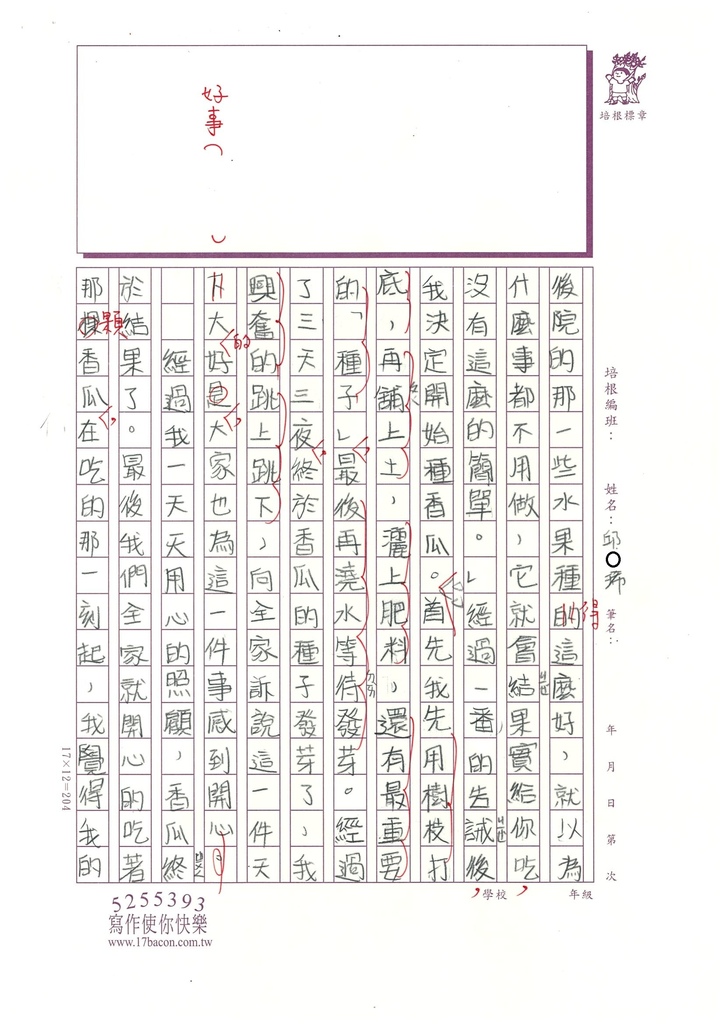 好事︵ ︶
培根標章
培根編班：
姓名：邱○
筆名：
年 月 日 第 次
後院的那一些水果種的得這麼好，就以為
什麼事都不用做，它就會結果實給你吃，
沒有這麼的簡單。」經過一番的告誡後，
我決定開始種香瓜。首先我先用樹枝打
底，再舖上土，灑上肥料，還有最重要
的「種子」，最後再澆水等待發芽。經過
了三天三夜，終於香瓜的種子發芽了，我
興奮的跳上跳下，向全家訴說這一件天
大的好事，大家也為這一件事感到開心。
經過我一天天用心的照顧，香瓜終
於結果了。最後我們全家就開心的吃著
那顆香瓜，在吃的那一刻起，我覺得我的
學校 年級
17×12=204
5255393
寫作使你快樂
www.17bacon.com.tw